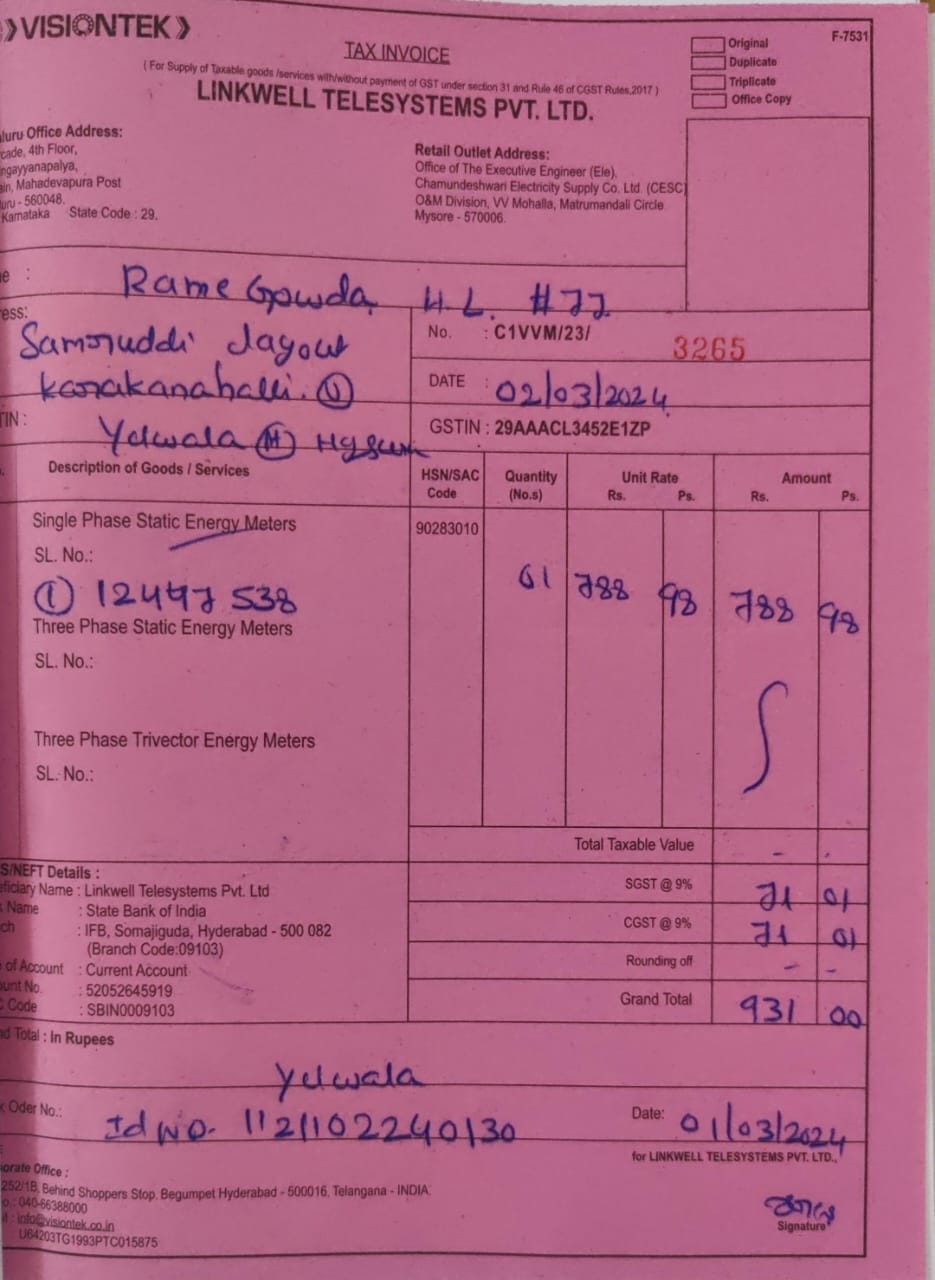 VISIONTEK
TAX INVOICE
Original
Duplicate
Triplicate
Office Copy
F-7531
( For Supply of Taxable goods /services with/without payment of GST under section 31 and Rule 46 of CGST Rules,2017 )
LINKWELL TELESYSTEMS PVT. LTD.
luru Office Address:
cade, 4th Floor,
ngayyanapalya,
ain, Mahadevapura Post
uru - 560048.
Karnataka State Code : 29.
Retail Outlet Address:
Office of The Executive Engineer (Ele),
Chamundeshwari Electricity Supply Co. Ltd. (CESC)
O&M Division, VV Mohalla, Matrumandali Circle
Mysore - 570006.
e : Rame Gowda H.L. #77
ess: Samruddi Layout
karakanahalli. (V)
TIN : Yelwala (H) Mysuru
No. : C1VVM/23/ 3265
DATE : 02/03/2024
GSTIN : 29AAACL3452E1ZP
Description of Goods / Services HSN/SAC Code Quantity (No.s) Unit Rate Rs. Ps. Amount Rs. Ps.
Single Phase Static Energy Meters 90283010
SL. No.:
(1) 12447538 01 788 98 788 98
Three Phase Static Energy Meters
SL. No.:
Three Phase Trivector Energy Meters
SL. No.:
Total Taxable Value - .
SGST @ 9% 71 01
CGST @ 9% 71 01
Rounding off - -
Grand Total 931 00
S/NEFT Details :
eficiary Name : Linkwell Telesystems Pvt. Ltd
Name : State Bank of India
ch : IFB, Somajiguda, Hyderabad - 500 082
(Branch Code:09103)
of Account : Current Account
ount No. : 52052645919
Code : SBIN0009103
nd Total : In Rupees
Yelwala
Oder No.: Id No. 1121102240130
Date: 01/03/2024
for LINKWELL TELESYSTEMS PVT. LTD.,
orate Office :
252/1B, Behind Shoppers Stop, Begumpet Hyderabad - 500016, Telangana - INDIA.
o.: 040-66388000
il : info@visiontek.co.in
U64203TG1993PTC015875
Signature